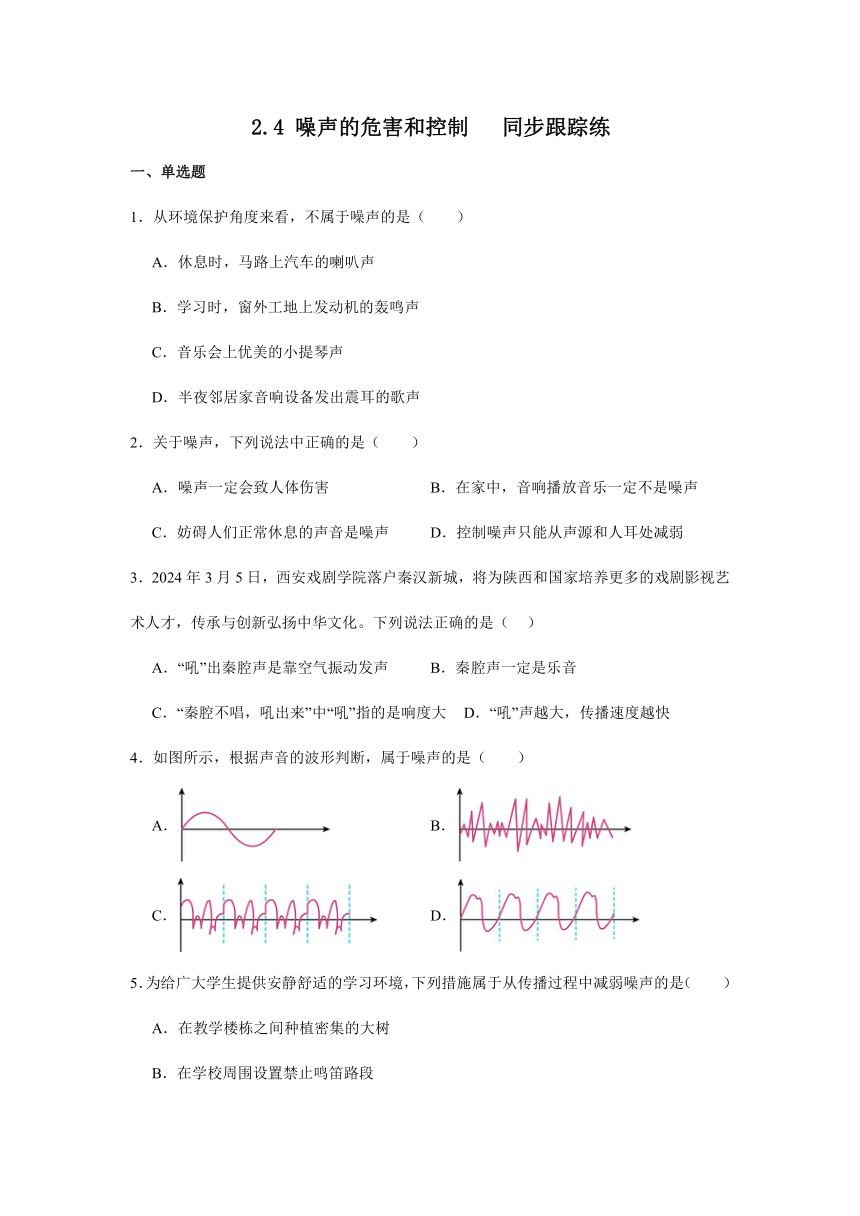 2.4 噪声的危害和控制 同步跟踪练
一、单选题
1．从环境保护角度来看，不属于噪声的是（ ）
A．休息时，马路上汽车的喇叭声
B．学习时，窗外工地上发动机的轰鸣声
C．音乐会上优美的小提琴声
D．半夜邻居家音响设备发出震耳的歌声
2．关于噪声，下列说法中正确的是（ ）
A．噪声一定会致人体伤害 B．在家中，音响播放音乐一定不是噪声
C．妨碍人们正常休息的声音是噪声 D．控制噪声只能从声源和人耳处减弱
3．2024年3月5日，西安戏剧学院落户秦汉新城，将为陕西和国家培养更多的戏剧影视艺
术人才，传承与创新弘扬中华文化。下列说法正确的是（ ）
A．“吼”出秦腔声是靠空气振动发声 B．秦腔声一定是乐音
C．“秦腔不唱，吼出来”中“吼”指的是响度大 D．“吼”声越大，传播速度越快
4．如图所示，根据声音的波形判断，属于噪声的是（ ）
A． B．
C． D．
5．为给广大学生提供安静舒适的学习环境，下列措施属于从传播过程中减弱噪声的是（ ）
A．在教学楼栋之间种植密集的大树
B．在学校周围设置禁止鸣笛路段